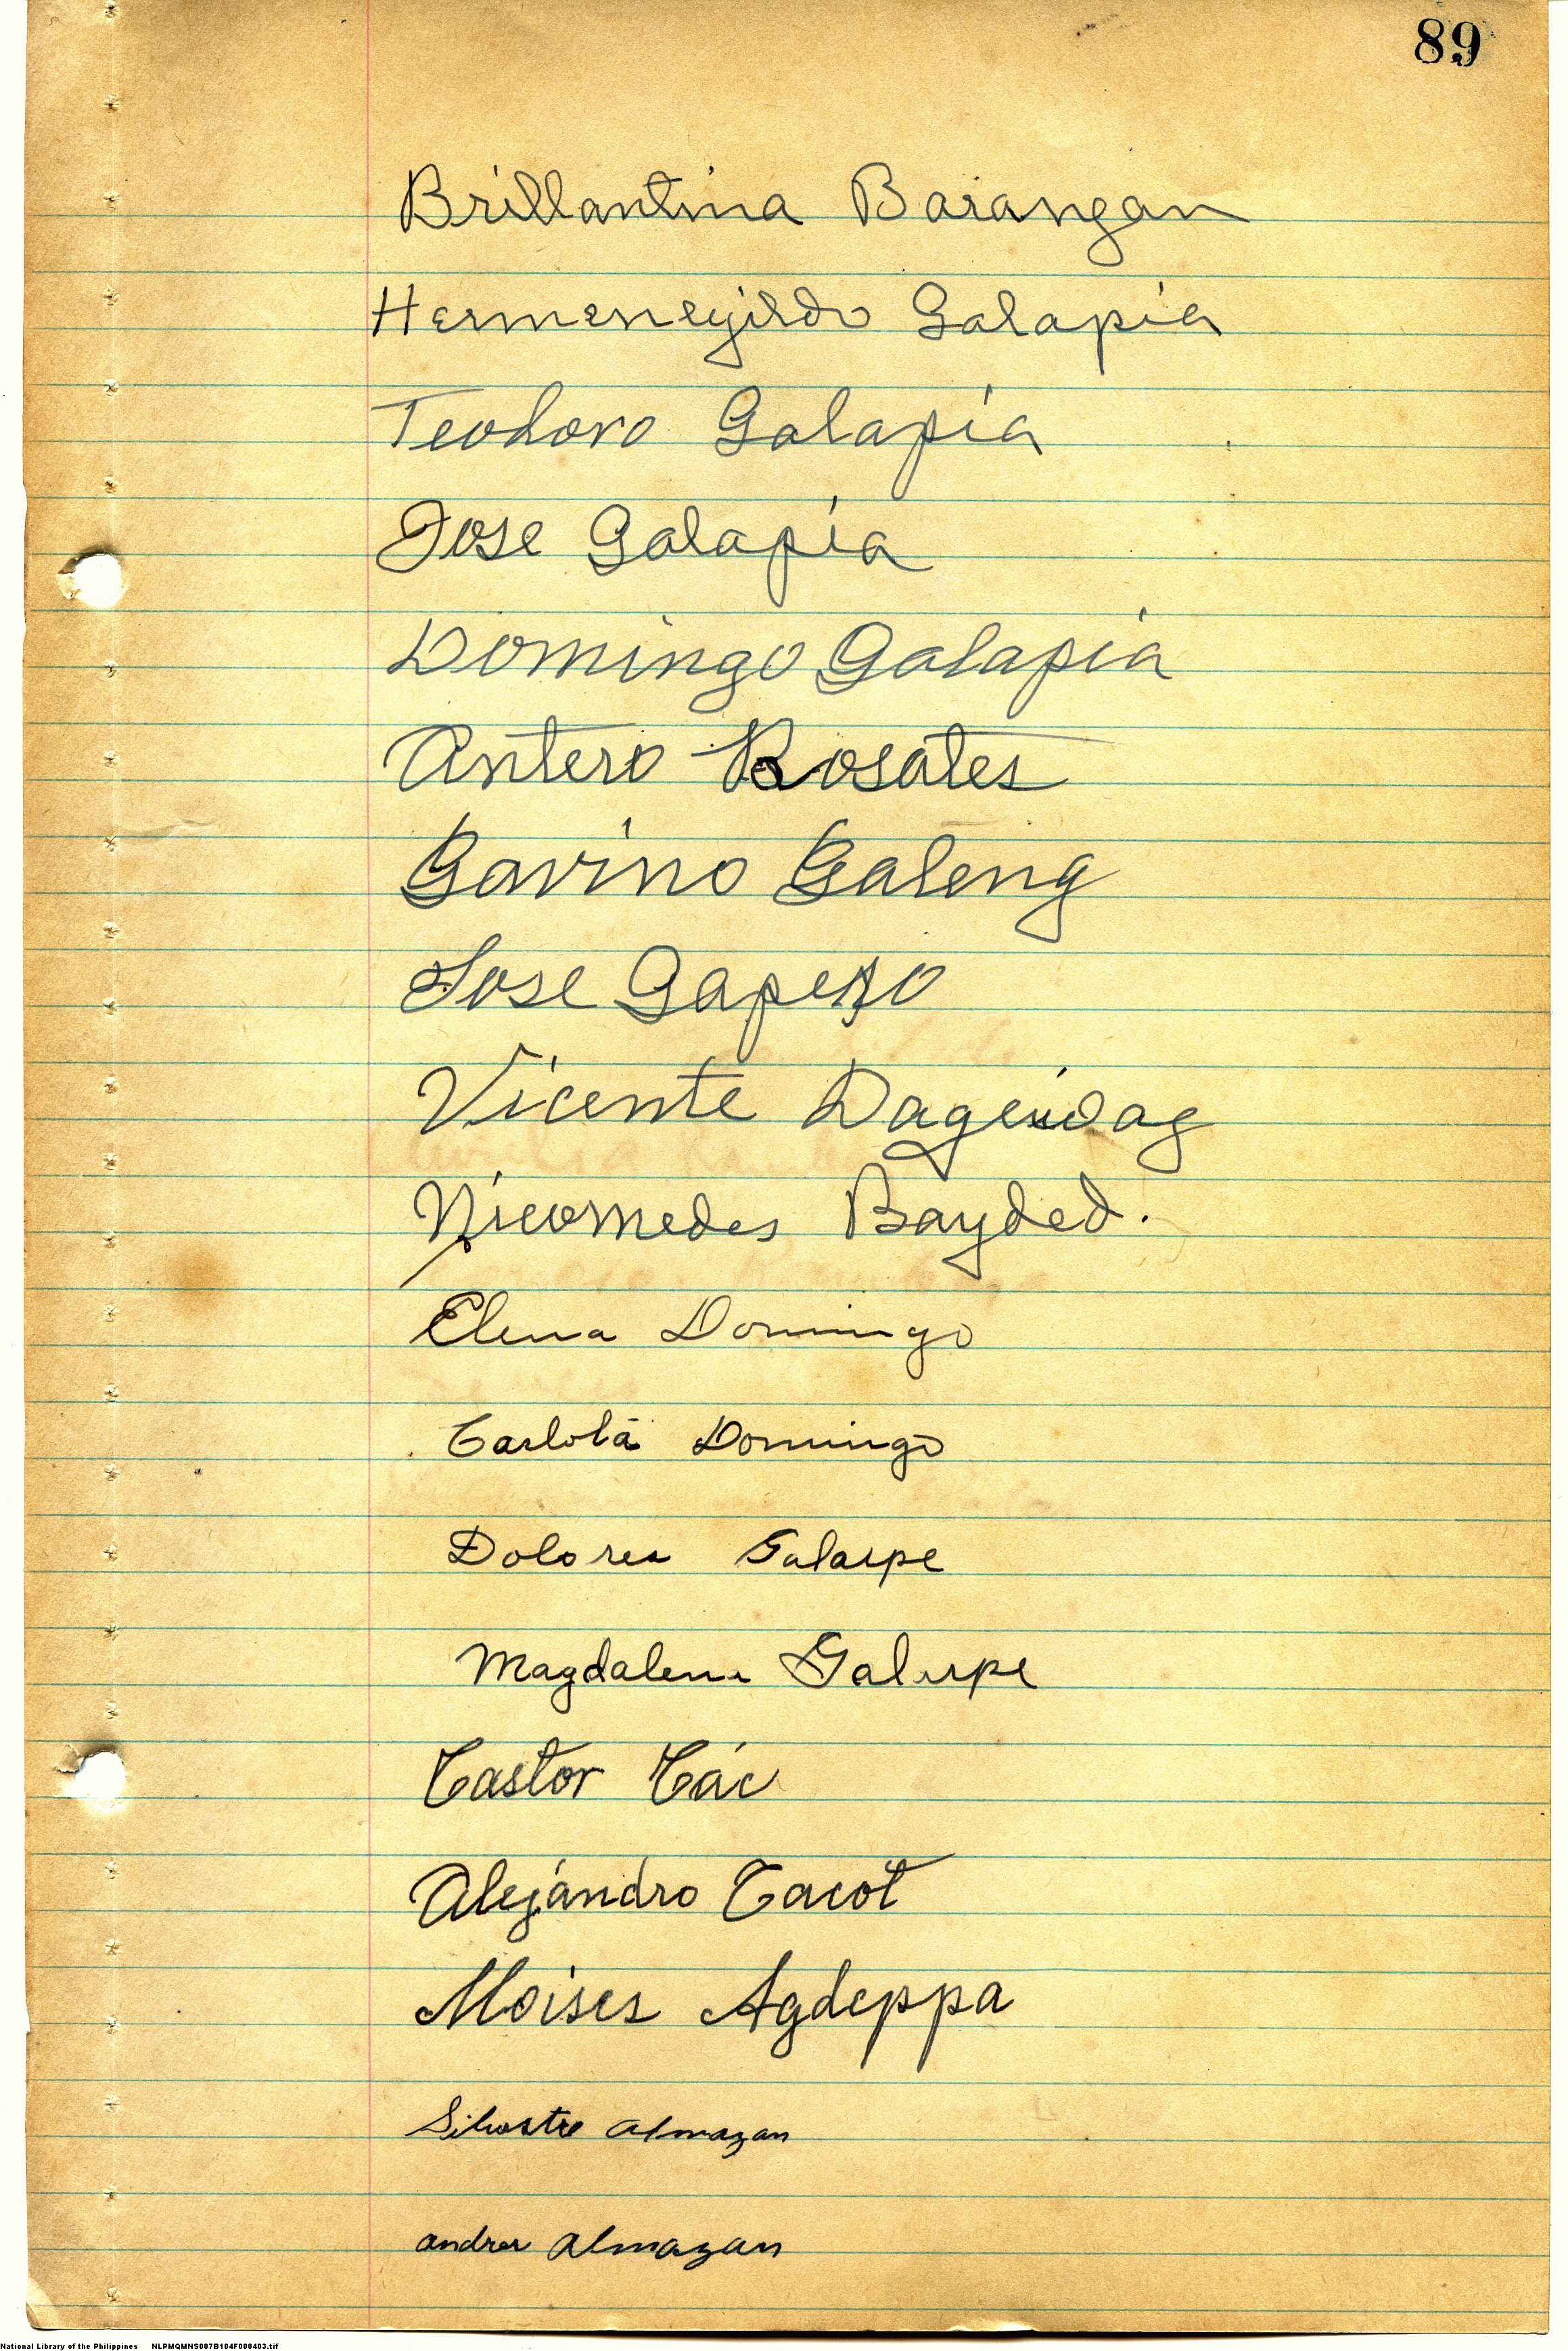 89
Brillantina Barangan
Hermenegildo Galapia
Teodoro Galapia
Jose Galapia
Domingo Galapia
Antero Rosates
Gavino Galeng
Jose
Vicente
Nicomedes Bayded.
Elena Domingo
Carlota Domingo
Dolores Galarpe
Magdalena Galarpe
Castor Các
Alejándro Cacot
Moises Agdeppa
Silvestre Almazan
Andres Almazan
National Library of the Philippines NLPMQMNS007B104F000403.tif